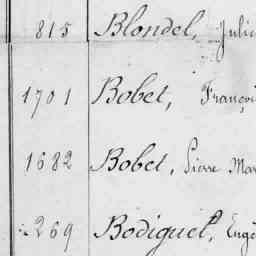 815 Blondel, Julie
1701 Bobet, Françoi
1682 Bobet, Pierre Mar
269 Bodiguel, Eugè